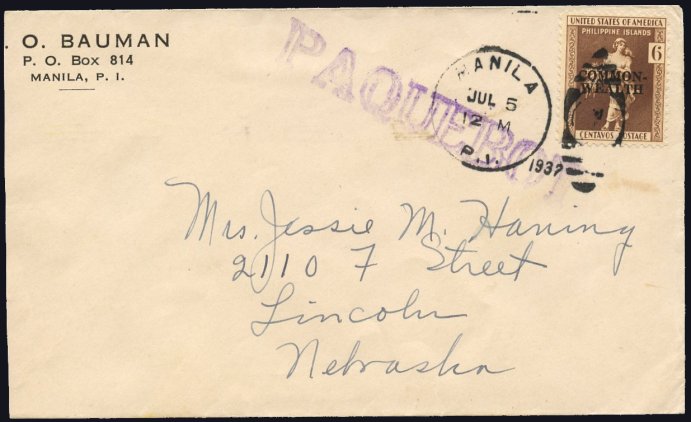 O. BAUMAN
P. O. Box 814
MANILA, P. I.
PAQUEBOT
MANILA
JUL 5
12 M
P.I.
1937
UNITED STATES OF AMERICA
PHILIPPINE ISLANDS
6
COMMON-
WEALTH
CENTAVOS POSTAGE
Mrs. Jessie M. Haning
2110 F Street
Lincoln
Nebraska